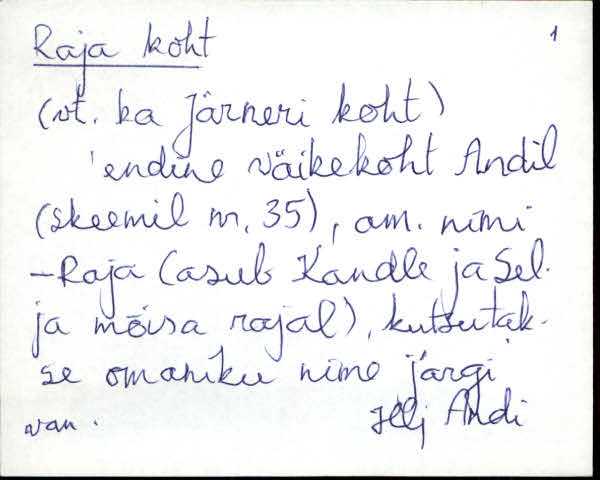 Raja koht 1
(vt. ka Järneri koht)
endine väikekoht Andil
(skeemil nr. 35), am. nimi
– Raja (asub Kandle ja Sel-
ja mõisa rajal), kutsutak-
se omaniku nime järgi
van. Hlj Andi